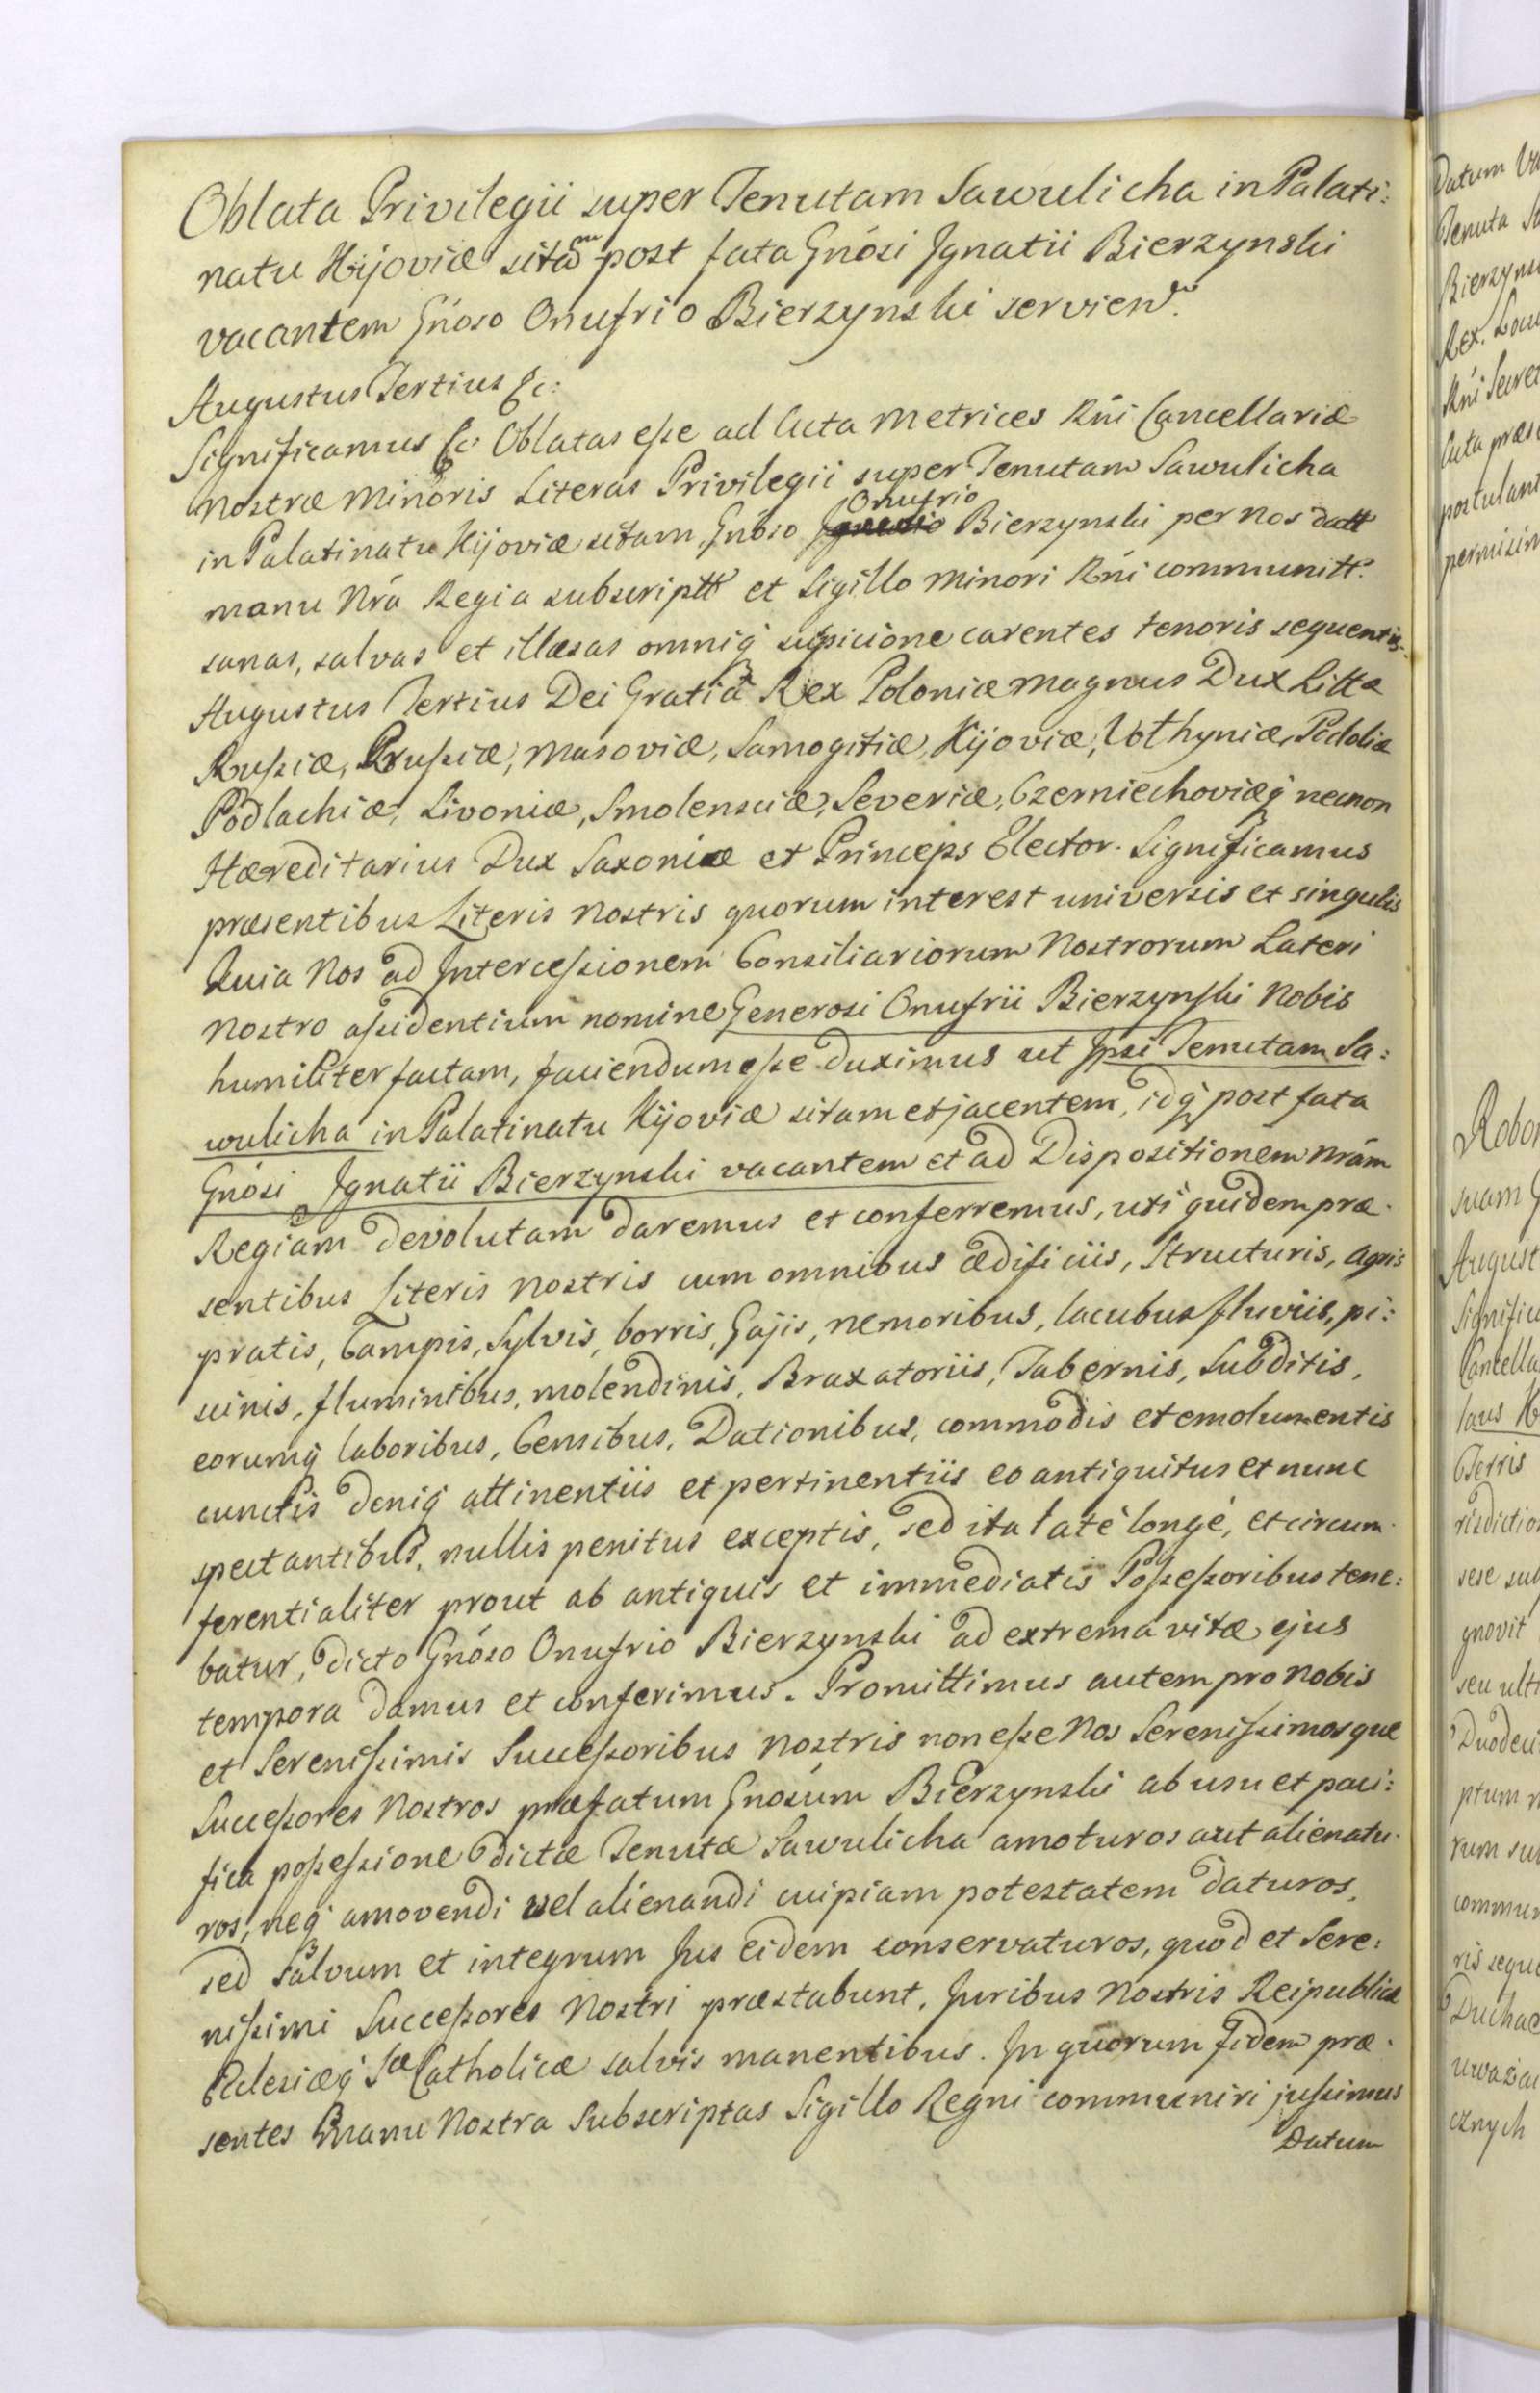 Oblata Privilegii super Tenutam Sawulicha in Palati:
natu Kijoviæ sitam post fata Gnósi Jgnatii Bierzynski
vacantem Gnóso Onufrio Bierzynski serviend.
Augustus Tertius &c:
Significamus &c Oblatas eſse ad Acta Metrices Rńi Cancellariæ
Nostræ Minoris Literas Privilegii super Tenutam Sawulicha
in Palatinatu Kijoviæ sitam, Gnóso Onufrio Bierzynski per nos datt
manu Nrá Regia subscriptt et Sigillo Minori Rńi communitt.
sanas, salvas et illæsas omniq suspicione carentes tenoris sequentis.
Augustus Tertius Dei Gratiâ Rex Poloniæ Magnus Dux Littæ
Ruſsiæ, Pruſsiæ, Masoviæ, Samogitiæ, Kijoviæ, Volhyniæ, Podoliæ
Podlachiæ, Livoniæ, Smolensciæ, Severiæ, Czerniechoviæq necnon
Hæreditarius Dux Saxoniæ et Princeps Elector. Significamus
præsentibus Literis Nostris quorum interest universis et singulis
Quia Nos ad Interceſsionem Consiliariorum Nostrorum Lateri
Nostro aſsidentium nomine Generosi Onufrii Bierzynſki Nobis
humiliter factam, faciendum eſse duximus ut Jpsi Tenutam Sa:
wulicha in Palatinatu Kijoviæ sitam et jacentem, idq post fata
Gnósi Jgnatii Bierzynski vacantem et ad Dispositionem Nrám
Regiam devolutam daremus et conferremus, uti quidem præ.
sentibus Literis Nostris cum omnibus ædificiis, Structuris, agris
pratis, Campis, Sylvis, borris, Gajis, nemoribus, lacubus fluviis, pi:
scinis, fluminibus, molendinis, Braxatoriis, Tabernis, Subditis,
eorumq laboribus, Censibus, Dationibus, commodis et emolumentis
cunctis deniq attinentiis et pertinentiis eo antiquitus et nunc
spectantibus, nullis penitus exceptis, sed ita laté longé, et circum.
ferentialiter prout ab antiquis et immediatis Poſseſsoribus tene:
batur, dicto Gnóso Onufrio Bierzynski ad extrema vitæ ejus
tempora damus et conferimus. Promittimus autem pro Nobis
et Sereniſsimis Succeſsoribus Nostris non eſse Nos Sereniſsimosque
Succeſsores Nostros præfatum Gnósum Bierzynski ab usu et paci:
fica poſseſsione dictæ Tenutæ Sawulicha amoturos aut alienatu.
ros, neq amovendi vel alienandi cuipiam potestatem daturos,
sed Salvum et integrum Jus eidem conservaturos, quod et Sere:
niſsimi Succeſsores Nostri præstabunt. Juribus Nostris Reipublicæ
Eclesiæq Sæ Catholicæ salvis manentibus. Jn quorum fidem præ.
sentes Manu Nostra Subscriptas Sigillo Regni communiri juſsimus
Datum